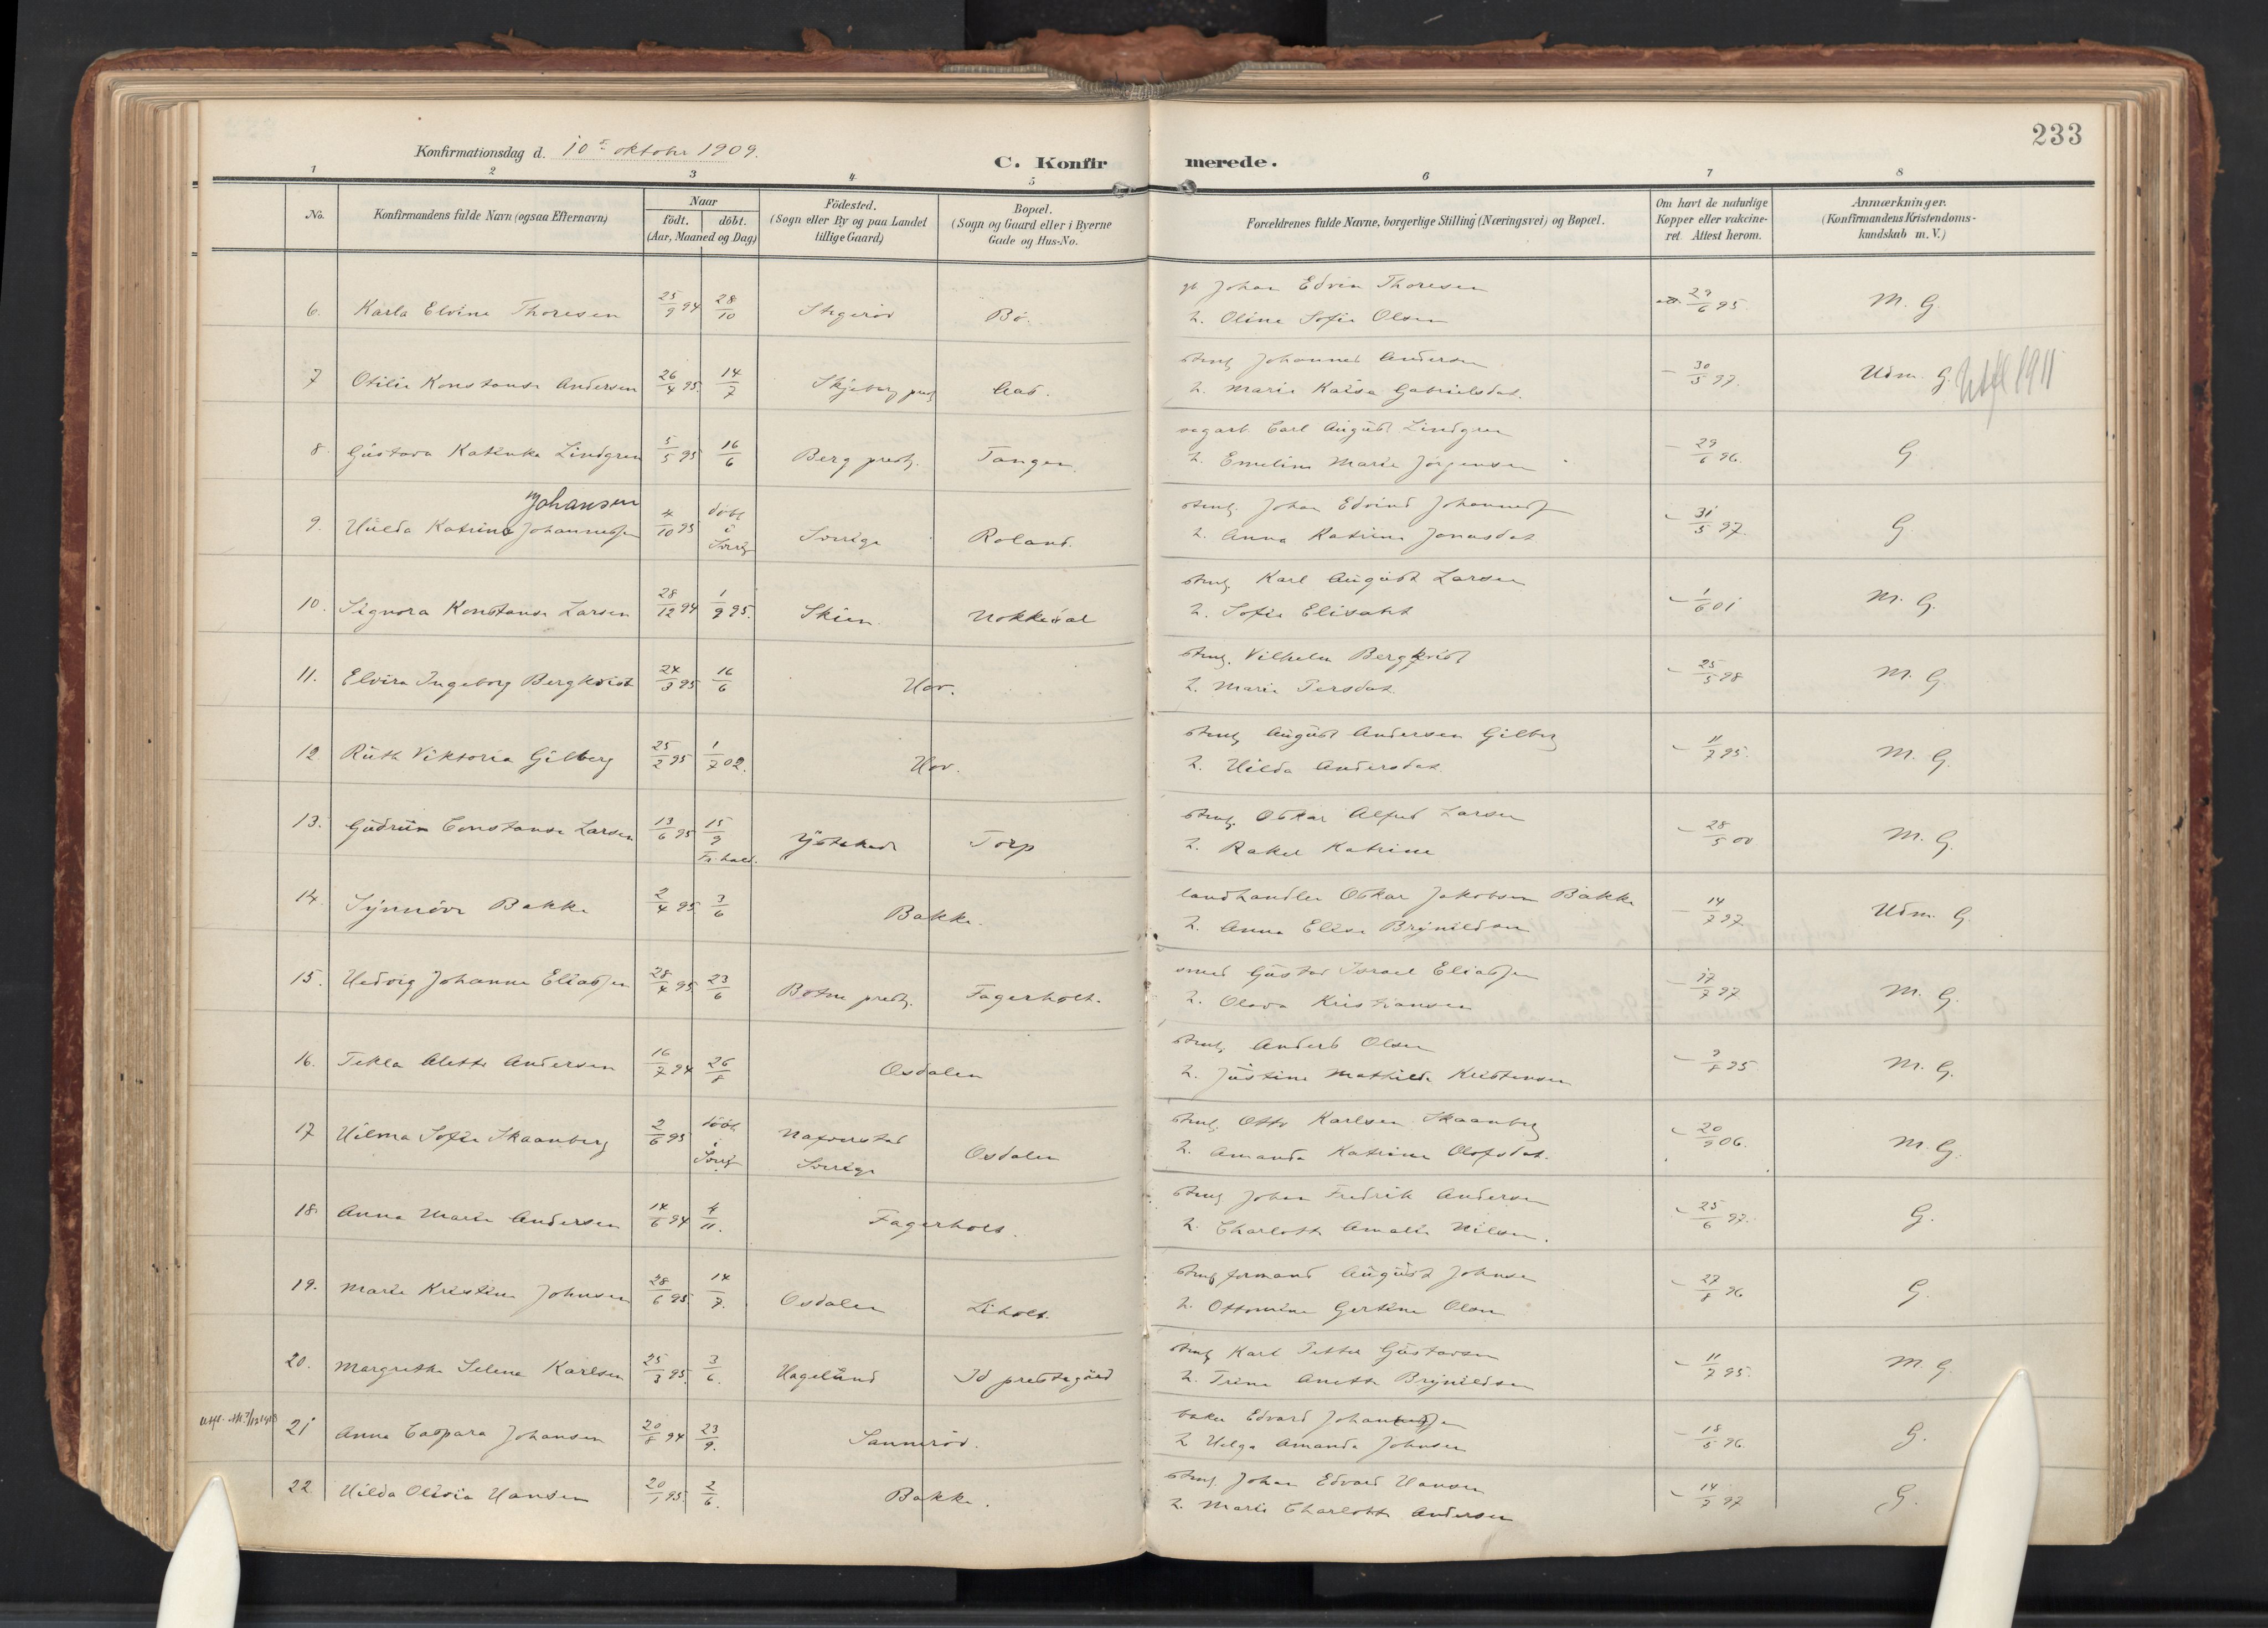 233
Konfirmationsdag d. 10de oktober 1909.
C. Konfirmerede.
1 2 3 4 5 6 7 8
No.
Konfirmandens fulde Navn (ogsaa Efternavn)
Naar
født. døbt.
(Aar, Maaned og Dag)
Födested.
(Sogn eller By og paa Landet
tillige Gaard)
Bopæl.
(Sogn og Gaard eller i Byerne
Gade og Hus-No.
Forældrenes fulde Navne, borgerlige Stilling (Næringsvei) og Bopæl.
Om havt de naturlige
Kopper eller vakcine-
ret. Attest herom.
Anmærkninger.
(Konfirmandens Kristendoms-
kundskab m. V.)
6. Karla Elvine Thoresen 25/9 94 28/10 Bö. Johan Edvin Thoresen 29/6 95 M. G.
h. Oline Sofie Olsen
7 Otilie Konstanse Andersen 26/4 95. 14/7 Skjeberg prestg Aas. stenh Johannes Andersen 30/5 97. Udm. G. Utfl 1911
h. Marie Kaisa Gabrielsdat.
8. Gustava Katinka Lindgren 5/5 95 16/6 Berg prestg. Tangen. vegarb. Carl August Lindgren 29/6 96. G
h. Emeline Marie Jörgensen
Johansen
9. Hulda Katrine Johannessen 4/10 95 döbt i Sverig Sverige Roland. stenh. Johan Edvind Johannessen 31/5 97. G
h. Anna Katrine Jonasdat
10. Signora Konstanse Larsen 28/12 94 1/9 95. Skien Nokkedal stenh. Karl August Larsen 1/6 01 M. G.
h. Sofie Elisabet
11. Elvira Ingeborg Bergkvist 24/3 95 16/6 Hov. stenh. Vilhelm Bergkvist 25/5 98 M. G.
h. Marie Persdat.
12 Ruth Viktoria Gilberg 25/2 95 1/7 02. Hov. stenh August Andersen Gilberg 11/7 95. M. G.
h. Hilda Andersdat.
13. Gudrun Constanse Larsen 13/6 95 15/9 Fr.hald. Torp stenh. Oskar Alfred Larsen 28/5 00 M. G.
h. Rakel Katrine
14. Synnöve Bakke 2/4 95 3/6 Bakke. landhandler Oskar Jakobsen Bakke 14/7 97 Udm. G.
h. Anna Elise Brynildsen
15. Hedvig Johanne Eliassen 28/4 95. 23/6 Botne prestg. Fagerholt. smed Gustav Israel Eliassen 17/7 97 M. G.
h. Olava Kristiansen
16. Tekla Alette Andersen 16/7 94 26/8 Osdalen stenh. Anders Olsen M. G.
h. Justine Mathilde Kristensen
17 Hilma Sofie Skaanberg 2/6 95 döbt i Sverig Naverstad Osdalen stenh. Otto Karlsen Skaanberg 20/9 06. M. G.
Sverige
h. Amanda Katrine Olofsdat.
18. Anna Marie Andersen 14/6 94 4/11. Fagerholt. stenh Johan Fredrik Andersen 25/6 97. G.
h. Charlotte Amalie Nilsen.
19. Marie Kristine Johnsen 28/6 95. 14/7. Osdalen Liholt. stenh formand August Johnsen 27/8 96 G.
h. Ottomine Gertine Olsen
20. Margrethe Selene Karlsen 25/3 95. 3/6. Hagelund Id prestegård stenh Karl Petter Gustavsen 11/7 95. M. G.
h. Trine Anette Brynildsen
21 Anna Caspara Johansen 20/8 94 23/9. Sannerød. baker Edvard Johannessen 18/5 96. G.
h Helga Amanda Johnsen
22 Hilda Olivia Hansen 20/1 95. 2/6. Bakke. stenh. Johan Edvard Hansen 14/7 97 G.
h. Marie Charlotte Andersen